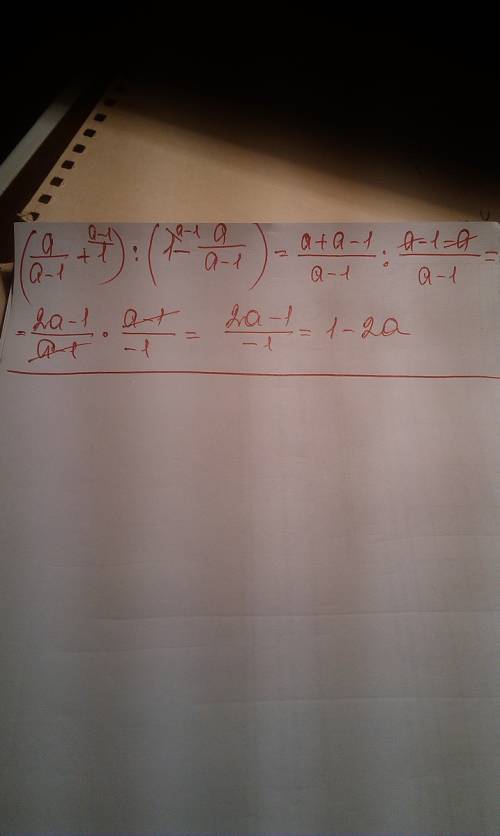 (a/(a-1) + 1^(a-1)) : (1^(a-1) - a/(a-1)) = (a+a-1)/(a-1) : (a-1-a)/(a-1) =
= (2a-1)/(a-1) · (a-1)/(-1) = (2a-1)/(-1) = 1-2a